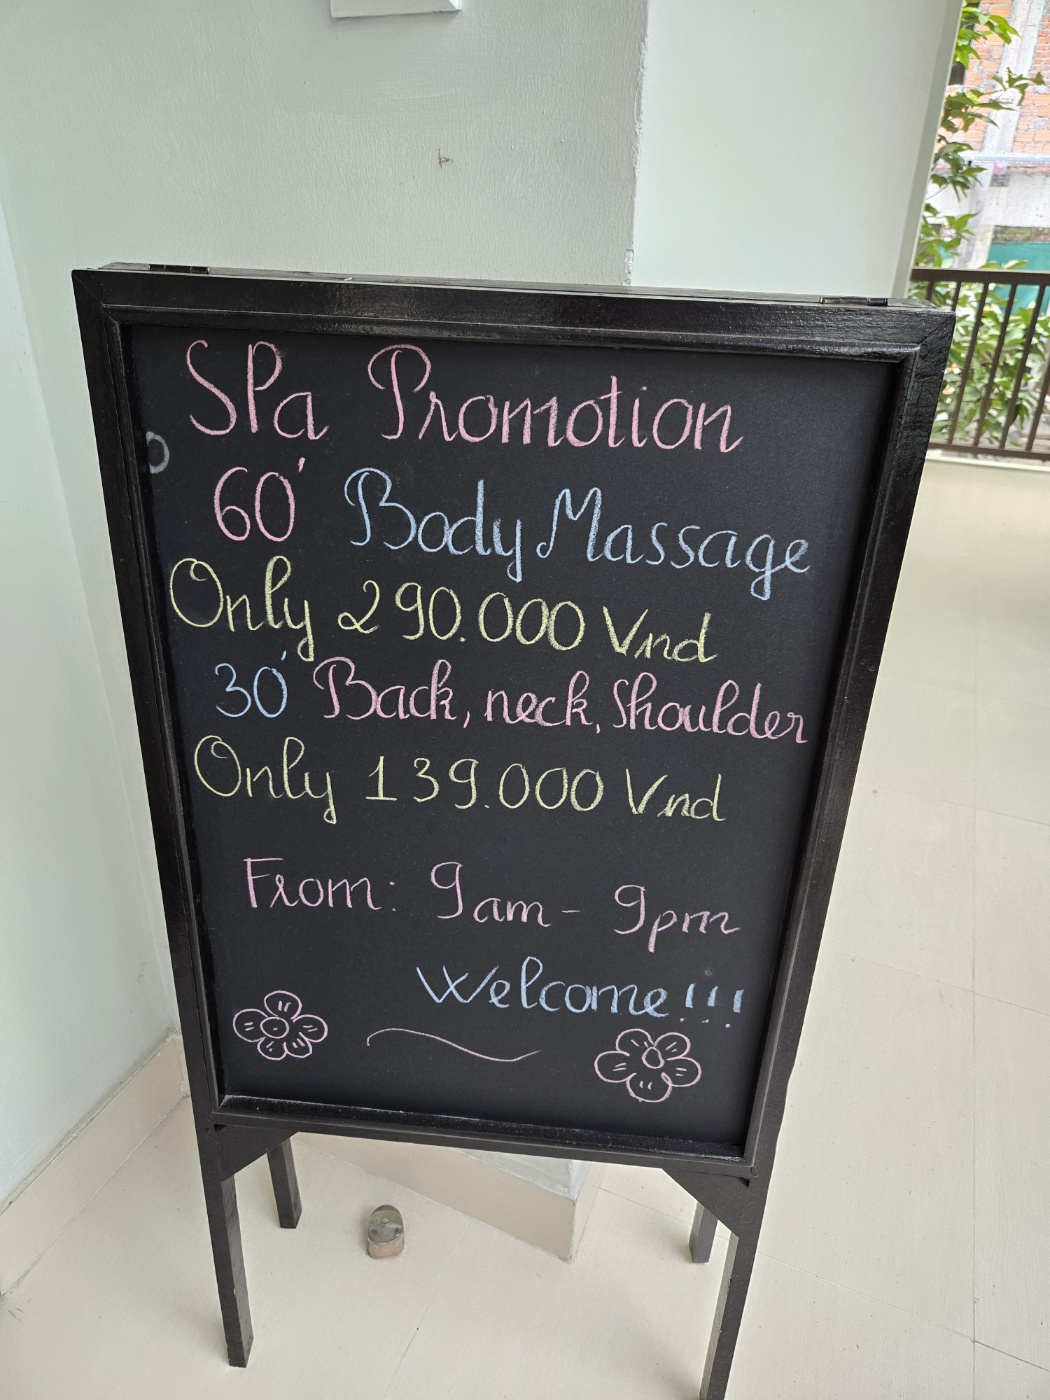 SPa Promotion
60' Body Massage
Only 290.000 Vnd
30' Back, neck, Shoulder
Only 139.000 Vnd
From: 9am - 9pm
Welcome!!!